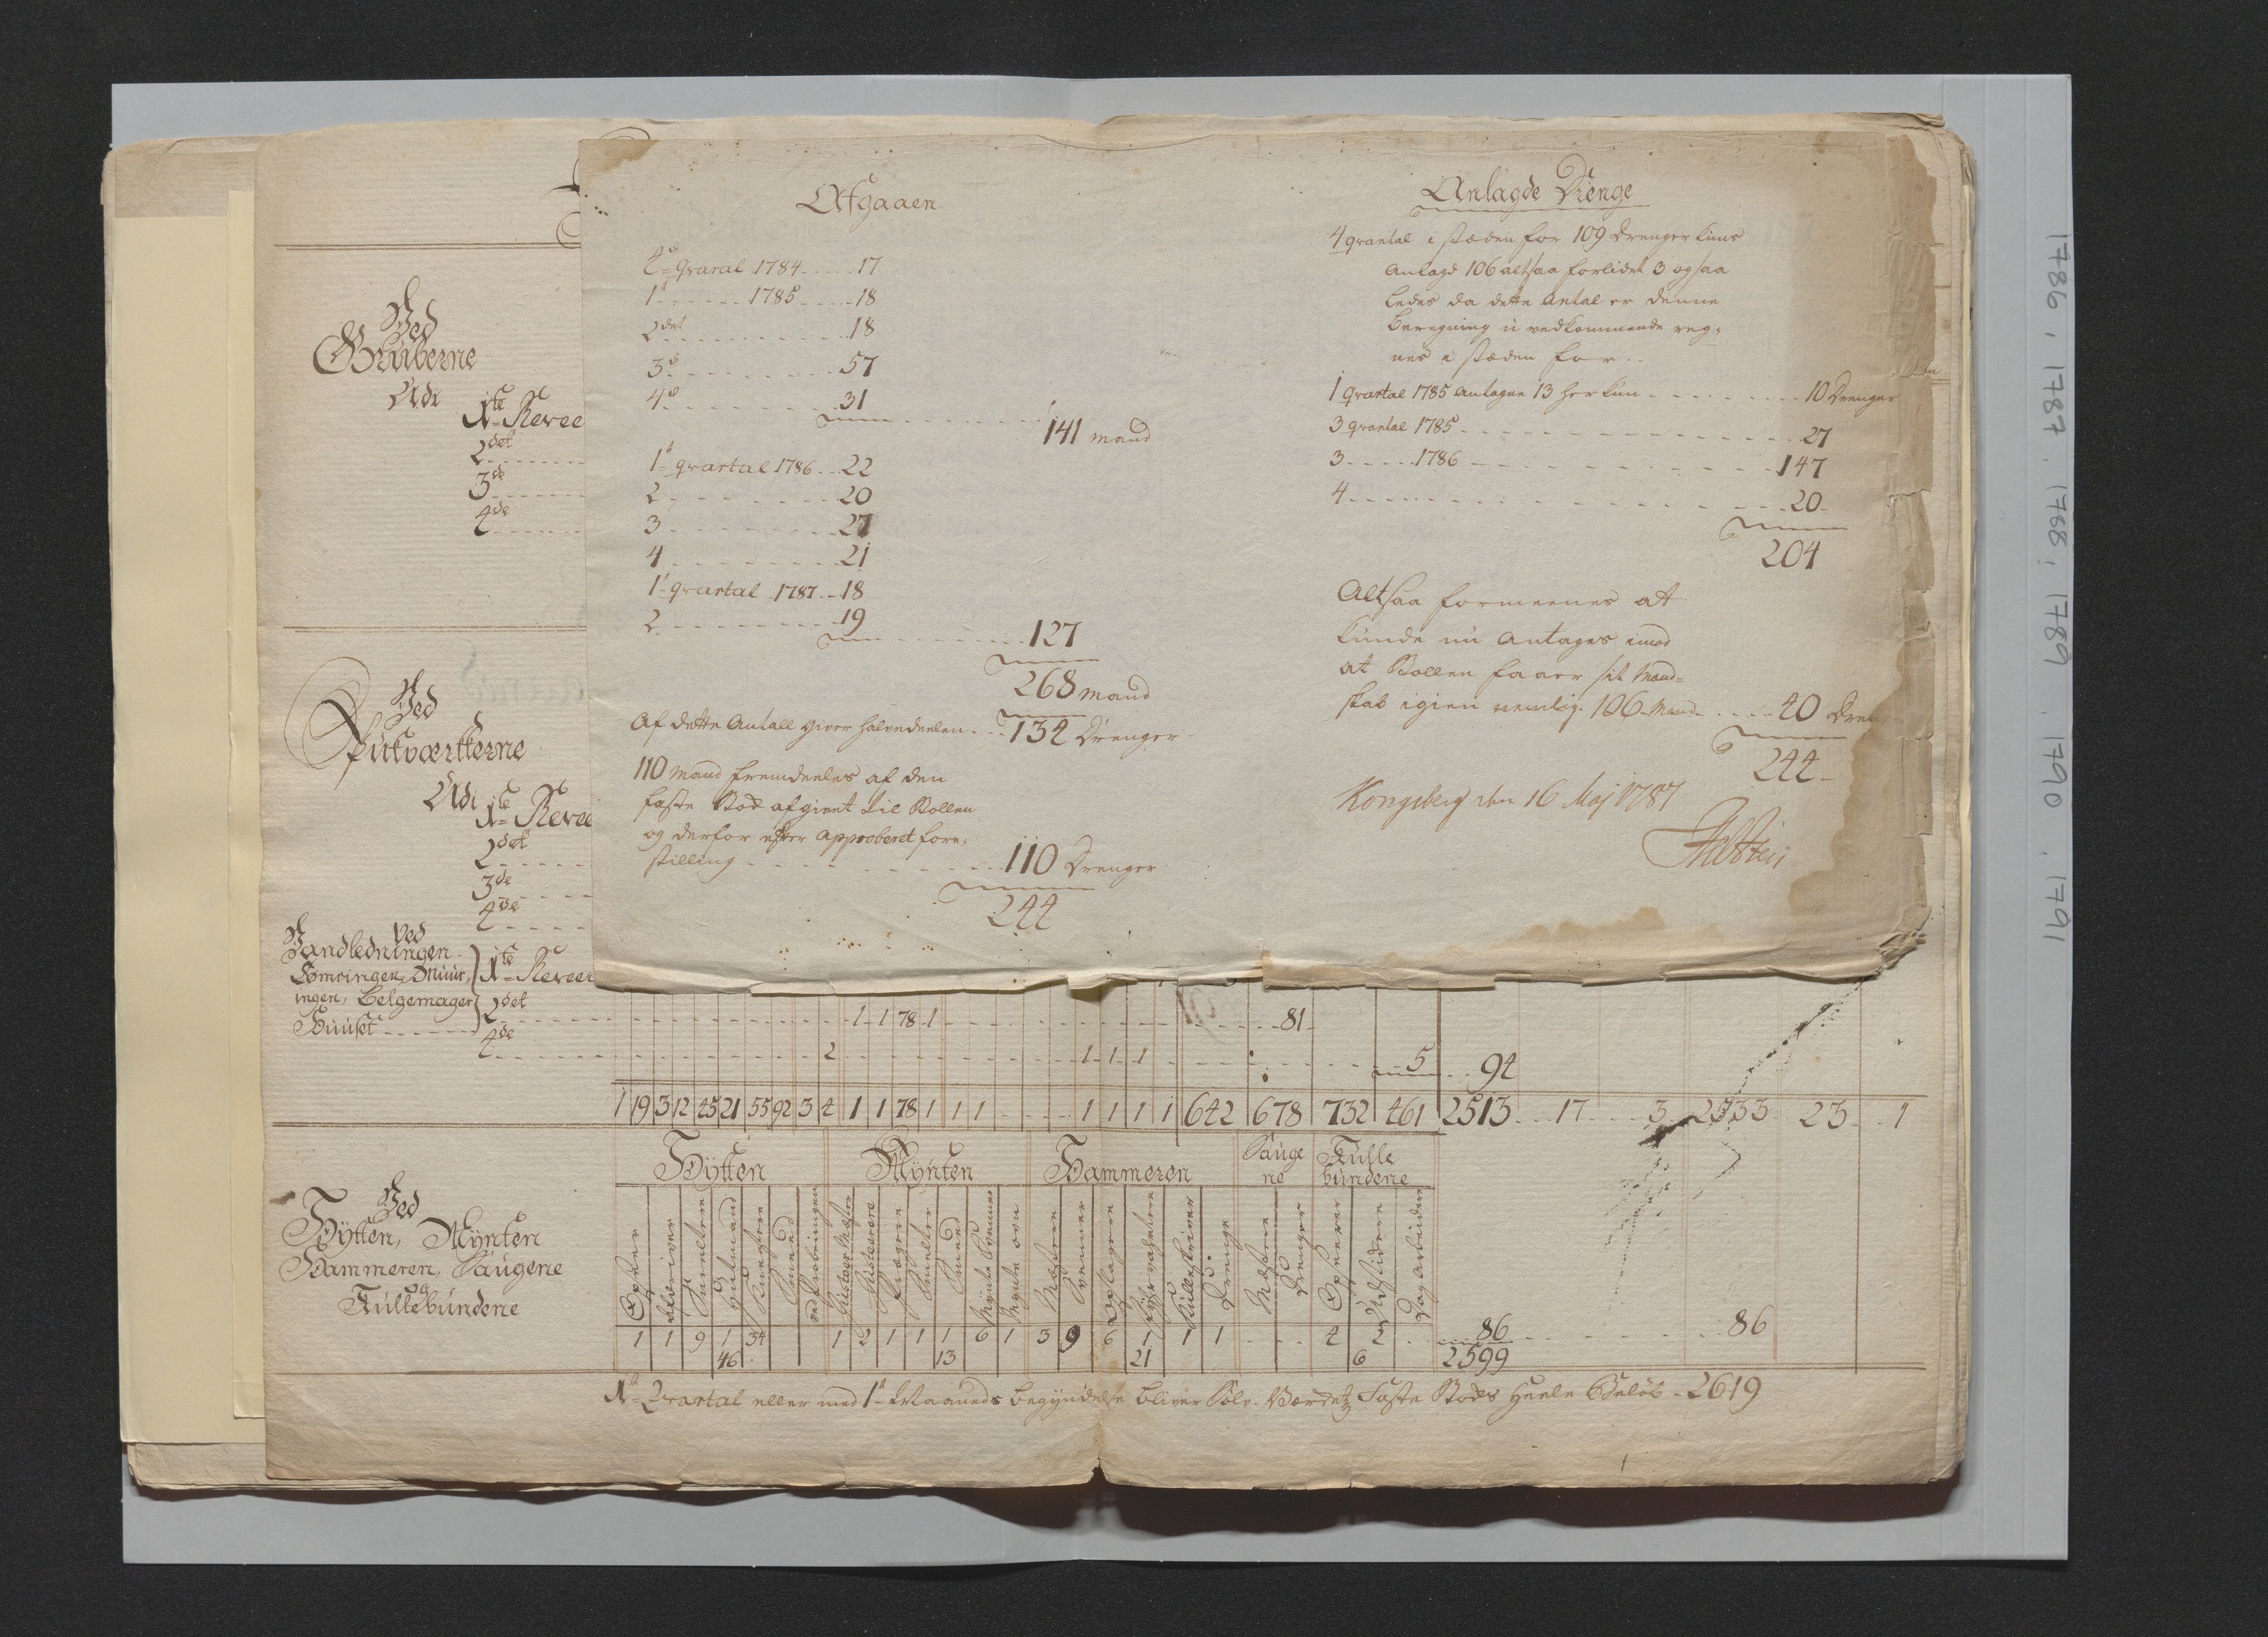 Afgaaen
4d Qvaral 1784 17
1t 1785 18
2det 18
3d 57
4d 31
141 mand
1t qvartal 1786 22
2 20
3 27
4 21
1t qvartal 1787 18
2 19
127
268 mand
Af dette Antall giver halvedeelen 134 Drenger
110 Mand fremdeeles af den
faste Stok afgivet til Rollen
og derfor efter approberet fore-
stilling 110 Drenger
244
Anlagde Drenge
4 qvartal i stæden for 109 Drenger kuns
Anlagd 106 altsaa forlidet 3 og saa
ledes da dette Antal er denne
Beregning u vedkommende reg-
nes i stæden for
1 Qvartal 1785 Antagne 13 her kun 10 Drenger
3 qvartal 1785 27
3 1786 147
4 20
204
Altsaa formeenes at
kunde nu Antages imod
at Rollen faaer sit Mand-
skab igien nemlig 106 Mand 40 Dren
244
Kongsberg den 16 Maj 1787
Ved
Gruberne
Udi
1te Reveer
2det
3de
4de
Ved
Putværkerne
Udi
1te Reveer
2det
3de
4de
Ved
Vandledningen
Tømringen, Muur-
ingen, Belgemager
Huuset
1te Reveer
2det 1 1 78 1 81
4de 2 1 1 1 5 94
1 19 3 12 45 21 55 92 3 4 1 1 78 1 1 1 1 1 1 1 642 678 732 461 2513 17 3 2533 23 1
Ved
Hytten, Mynten
Hammeren, Saugene
og
Kullebundene
Hytten Mynten Hammeren Sauge
ne Kulle
bundene
1 1 9 1 34 1 2 1 1 1 6 1 3 9 6 1 1 1 4 2 86 86
46 13 21 6 2599
1t Qvartal eller med 1t Maaneds begyndelse bliver Sølv-Værkets Faste Stoks Heele Beløb 2619
1786, 1787, 1788, 1789, 1790, 1791